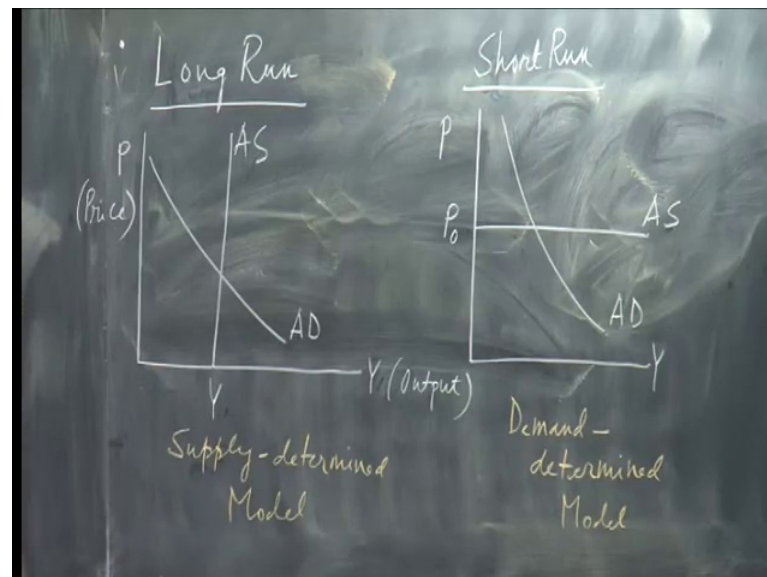 Long Run
P
(Price)
AS
AD
Y
Y (Output)
Supply-determined
Model
Short Run
P
P₀
AS
AD
Y
Demand-
determined
Model